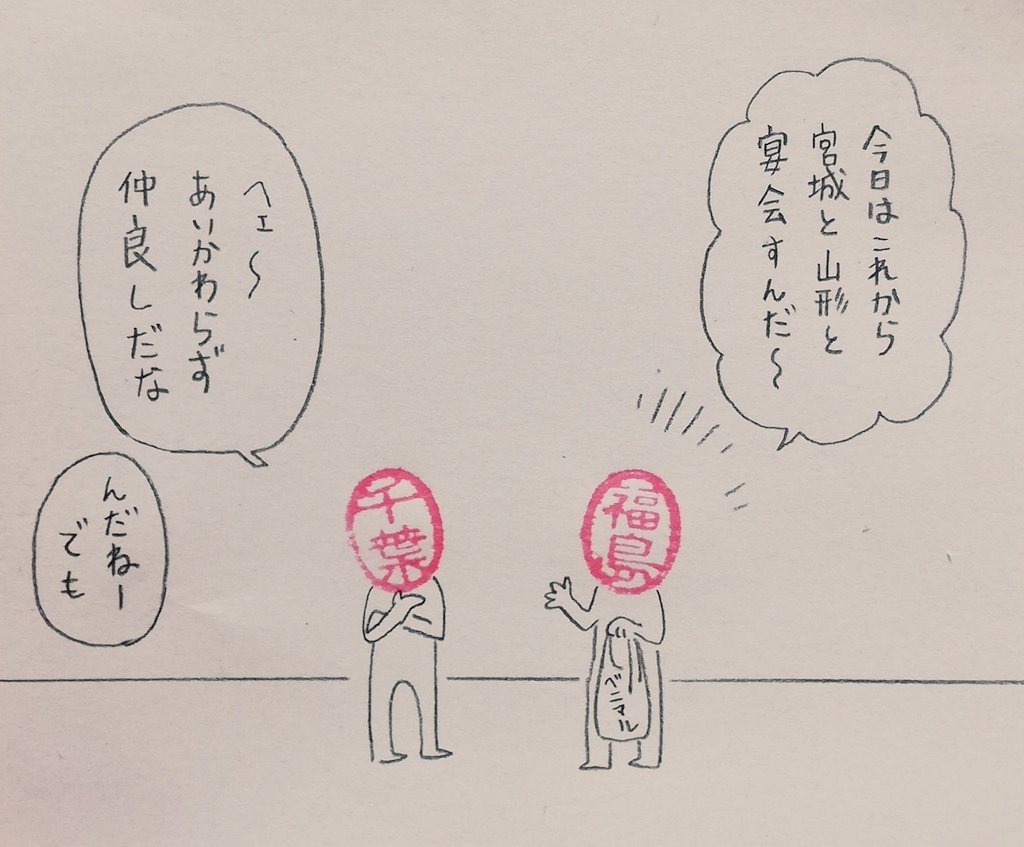 今日はこれから
宮城と山形と
宴会すんだ〜
ヘェ〜
あいかわらず
仲良しだな
んだねー
でも
千葉
福島
ベニマル